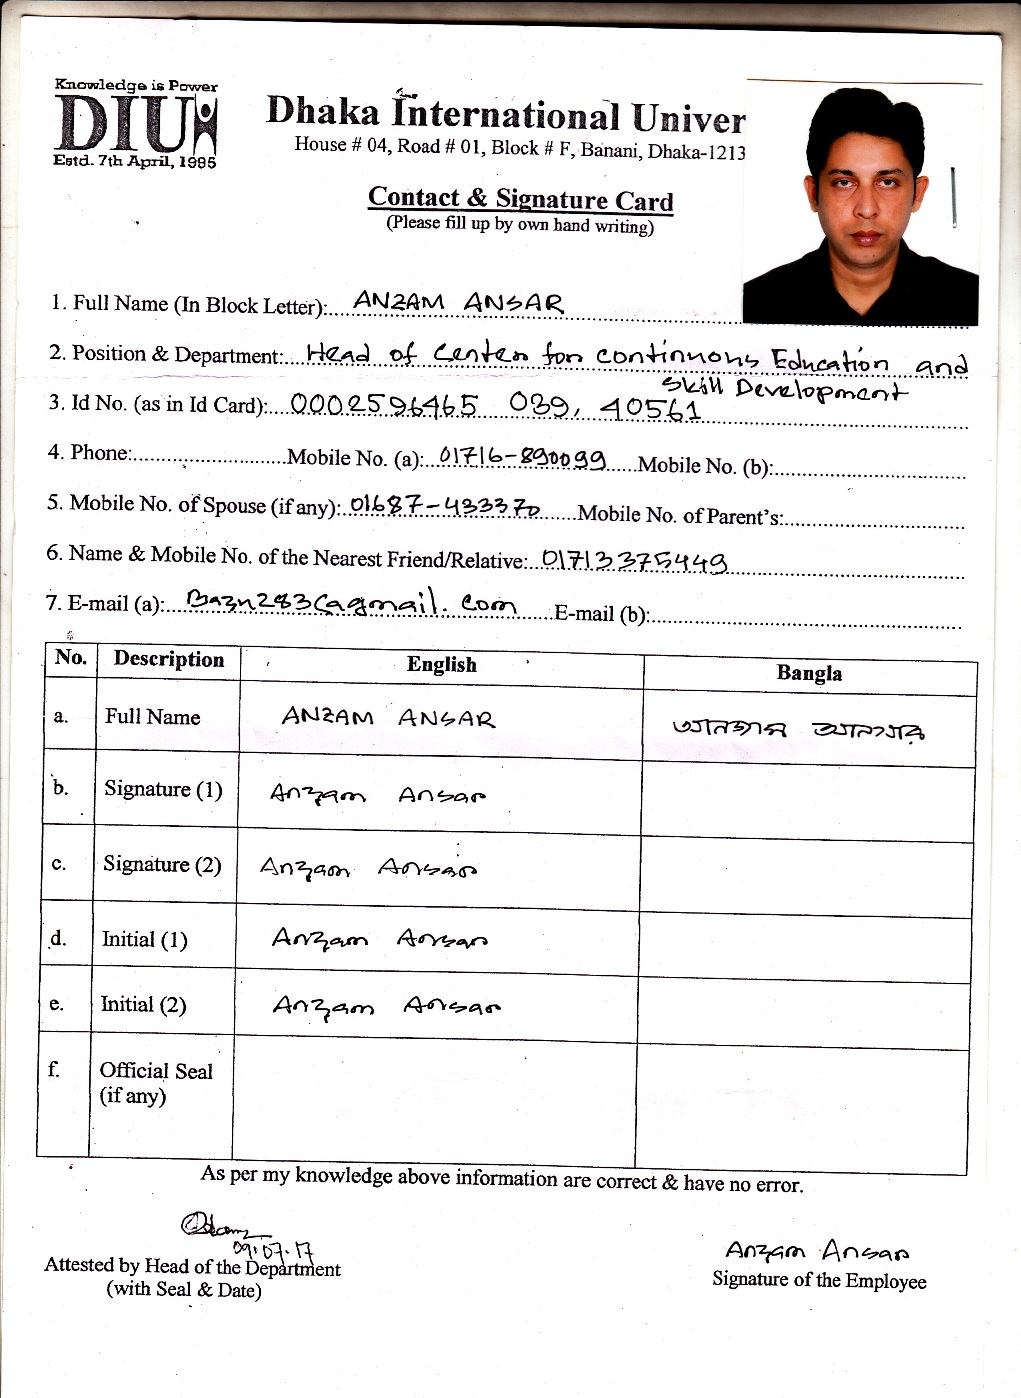 Knowledge is Power
DIU
Estd. 7th April, 1995
Dhaka International Univer
House # 04, Road # 01, Block # F, Banani, Dhaka-1213
Contact & Signature Card
(Please fill up by own hand writing)
1. Full Name (In Block Letter): ANZAM ANSAR
2. Position & Department: Head of Center for continuous Education and
Skill Development
3. Id No. (as in Id Card): 0002596465 039, 40561
4. Phone: Mobile No. (a): 01716-890099 Mobile No. (b):
5. Mobile No. of Spouse (if any): 01687-433370 Mobile No. of Parent's:
6. Name & Mobile No. of the Nearest Friend/Relative: 01713375449
7. E-mail (a): E-mail (b):
No. Description English Bangla
a. Full Name ANZAM ANSAR আনজাম আনসার
b. Signature (1) Anzam Ansar
c. Signature (2) Anzam Ansar
d. Initial (1) Anzam Ansar
e. Initial (2) Anzam Ansar
f. Official Seal
(if any)
As per my knowledge above information are correct & have no error.
09.07.17
Attested by Head of the Department
(with Seal & Date)
Anzam Ansar
Signature of the Employee